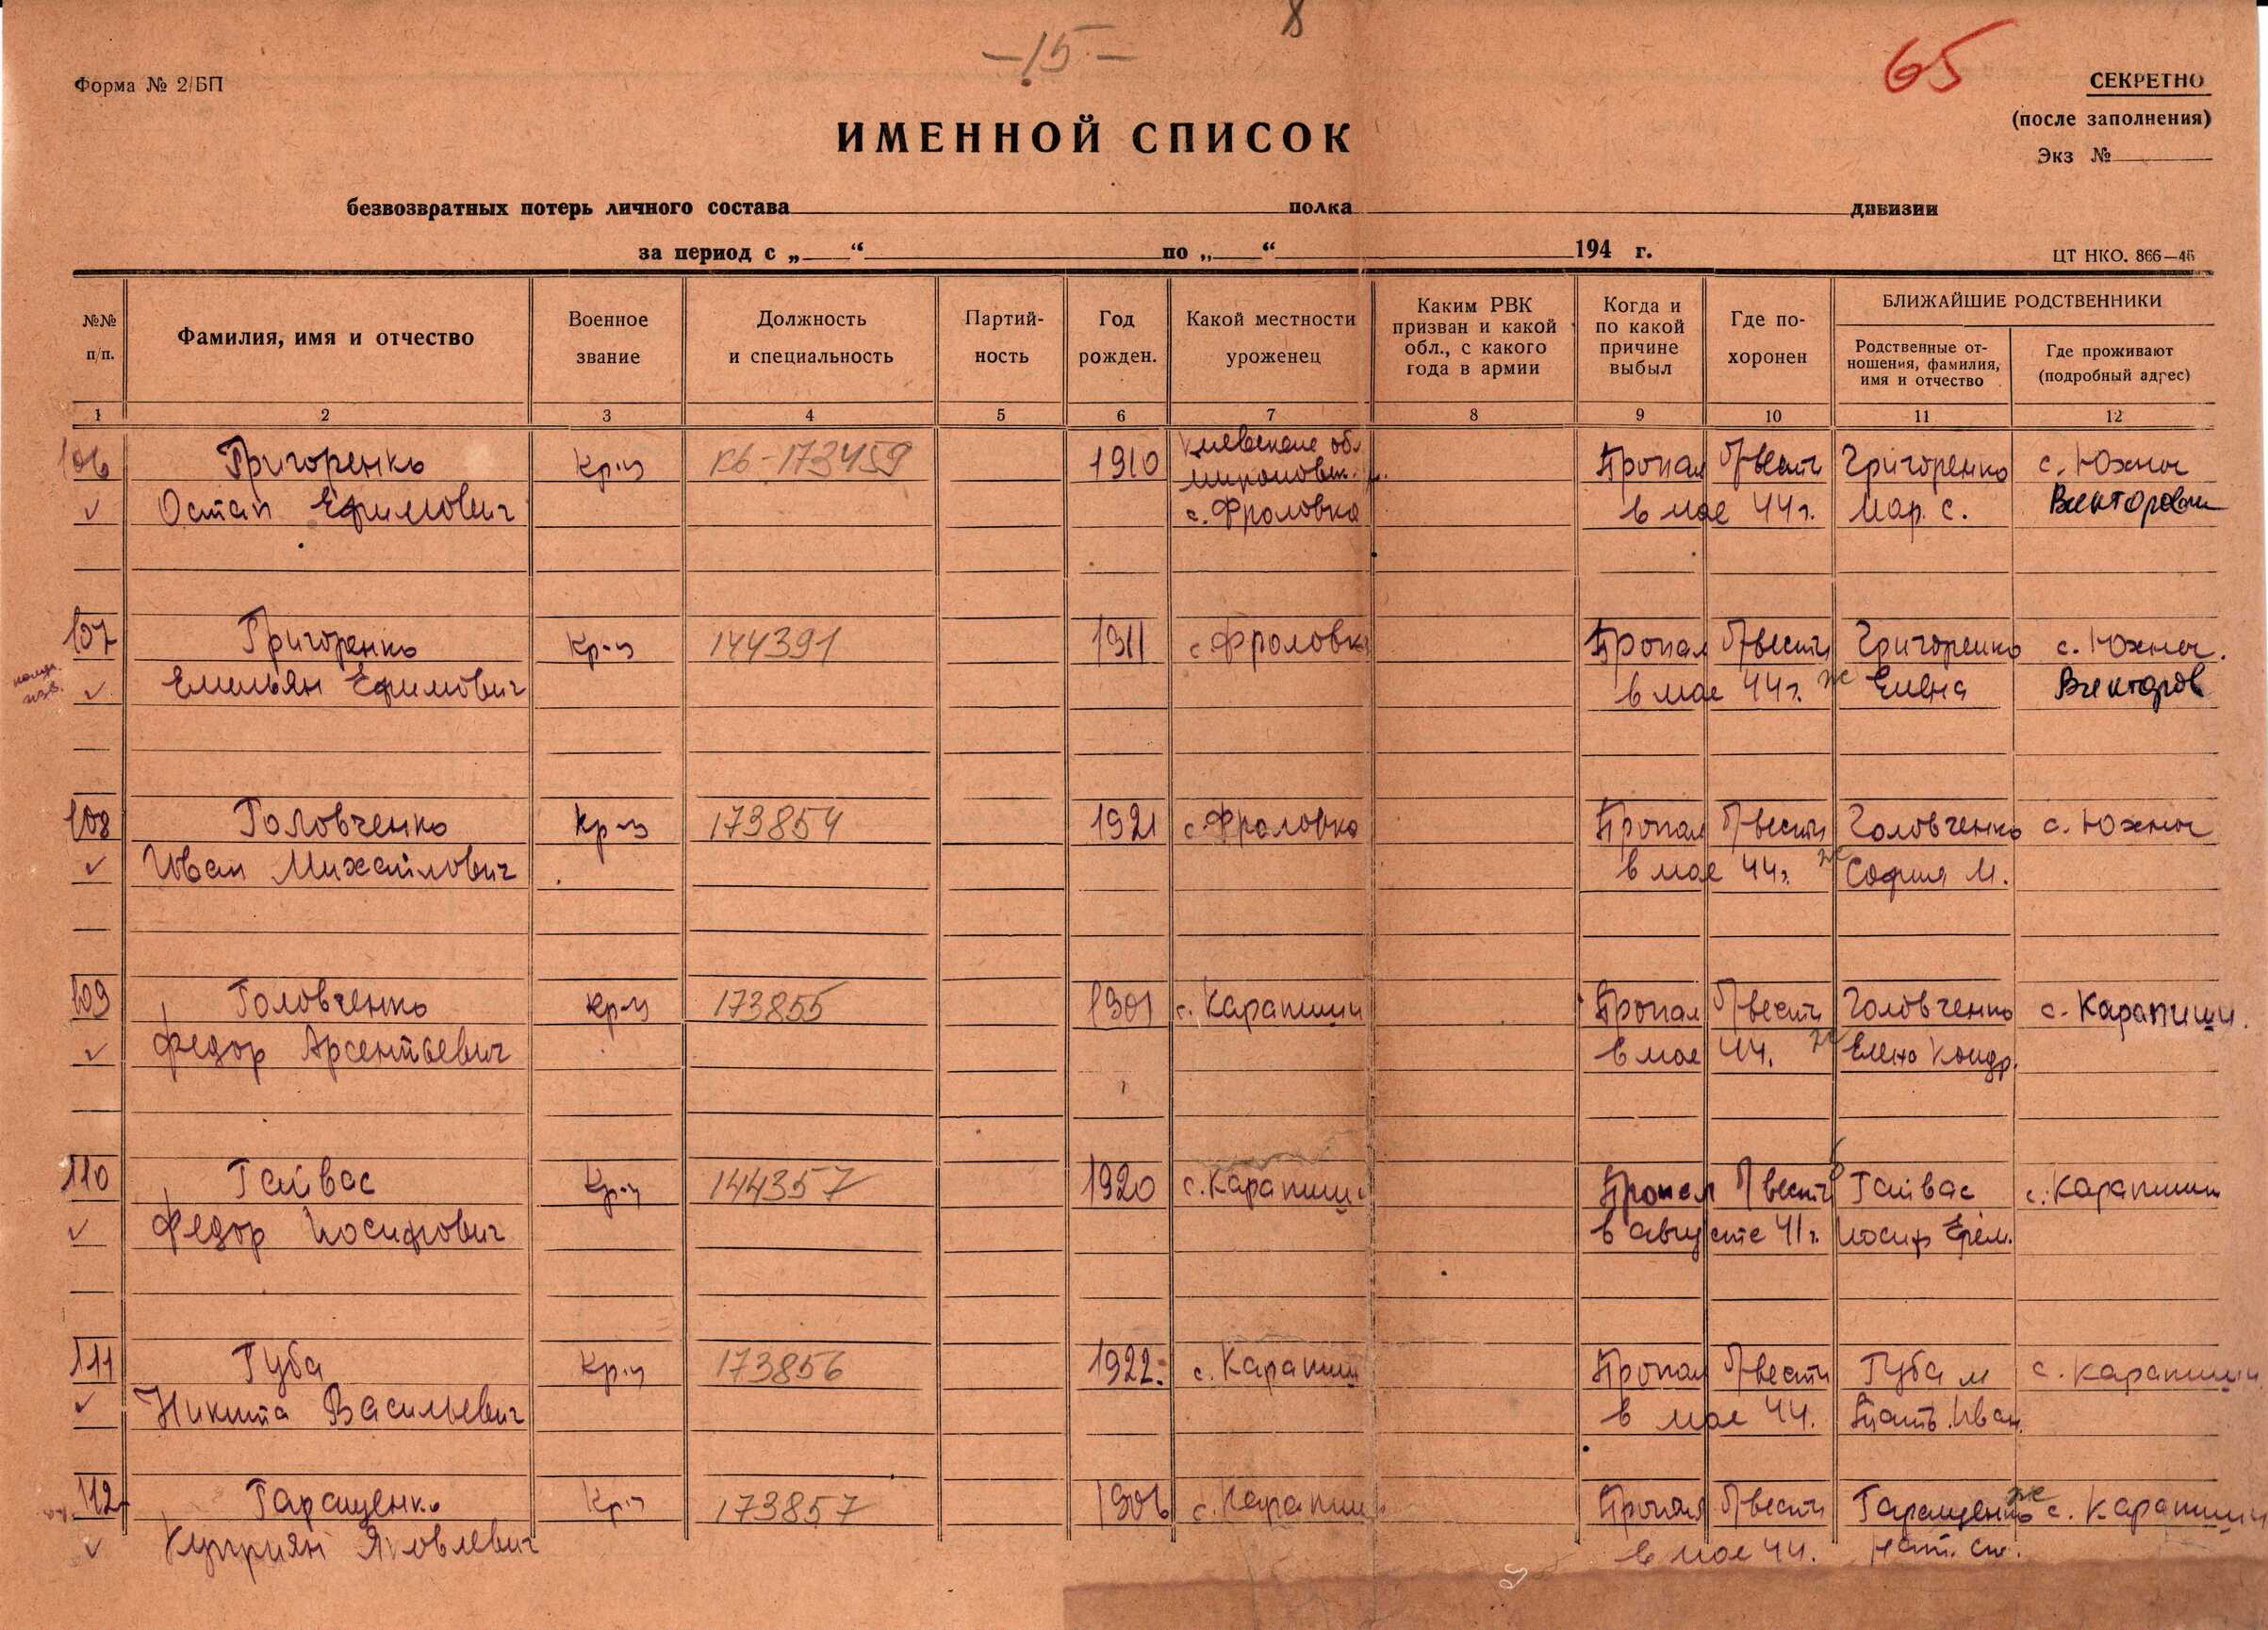 -15-
8
65
Форма № 2/БП
СЕКРЕТНО
(после заполнения)
Экз №
ИМЕННОЙ СПИСОК
безвозвратных потерь личного состава полка дивизии
за период с „ “ по „ “ 194 г.
ЦТ НКО. 866—46
№№ п/п.
Фамилия, имя и отчество
Военное звание
Должность и специальность
Партий-ность
Год рожден.
Какой местности уроженец
Каким РВК призван и какой обл., с какого года в армии
Когда и по какой причине выбыл
Где по-хоронен
БЛИЖАЙШИЕ РОДСТВЕННИКИ
Родственные от-ношения, фамилия, имя и отчество
Где проживают (подробный адрес)
1 2 3 4 5 6 7 8 9 10 11 12
Киевская обл.
106 Григоренко Кр-ц КБ-173459 1910 Мироновск. р. Пропал б/вести Григоренко с. Южная
Остап Ефимович с. Фроловка в мае 44г. Мар. С.
107 Григоренко Кр-ц 144391 1911 с Фроловка Пропал б/вести Григоренко с. Южная.
Емельян Ефимович в мае 44г. ж Елена
108 Головченко Кр-ц 173854 1921 с. Фроловка Пропал б/вести Головченко с. Южная
Иван Михайлович в мае 44г. ж София М.
109 Головченко Кр-ц 173855 1901 с. Карапиши Пропал б/вести Головченко с. Карапиши.
Федор Арсентьевич в мае 44. ж Елена Кондр.
110 Гайвас Кр-ц 144357 1920 с. Карапиши Пропал б/вести Гайвас с. Карапиши
Федор Иосифович в августе 41г. Иосиф Ерем.
111 Губа Кр-ц 173856 1922 с. Карапиши Пропал б/вести Губа м с. Карапиши
Никита Васильевич в мае 44. Иван.
112 Гаращенко Кр-ц 173857 1906 с. Карапиши Пропал б/вести Гаращенко ж с. Карапиши
Куприян Яковлевич в мае 44.